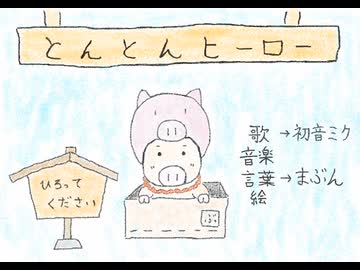 とんとんヒーロー
歌→初音ミク
音楽
言葉→まぶん
絵
ひろって
ください
ぶ